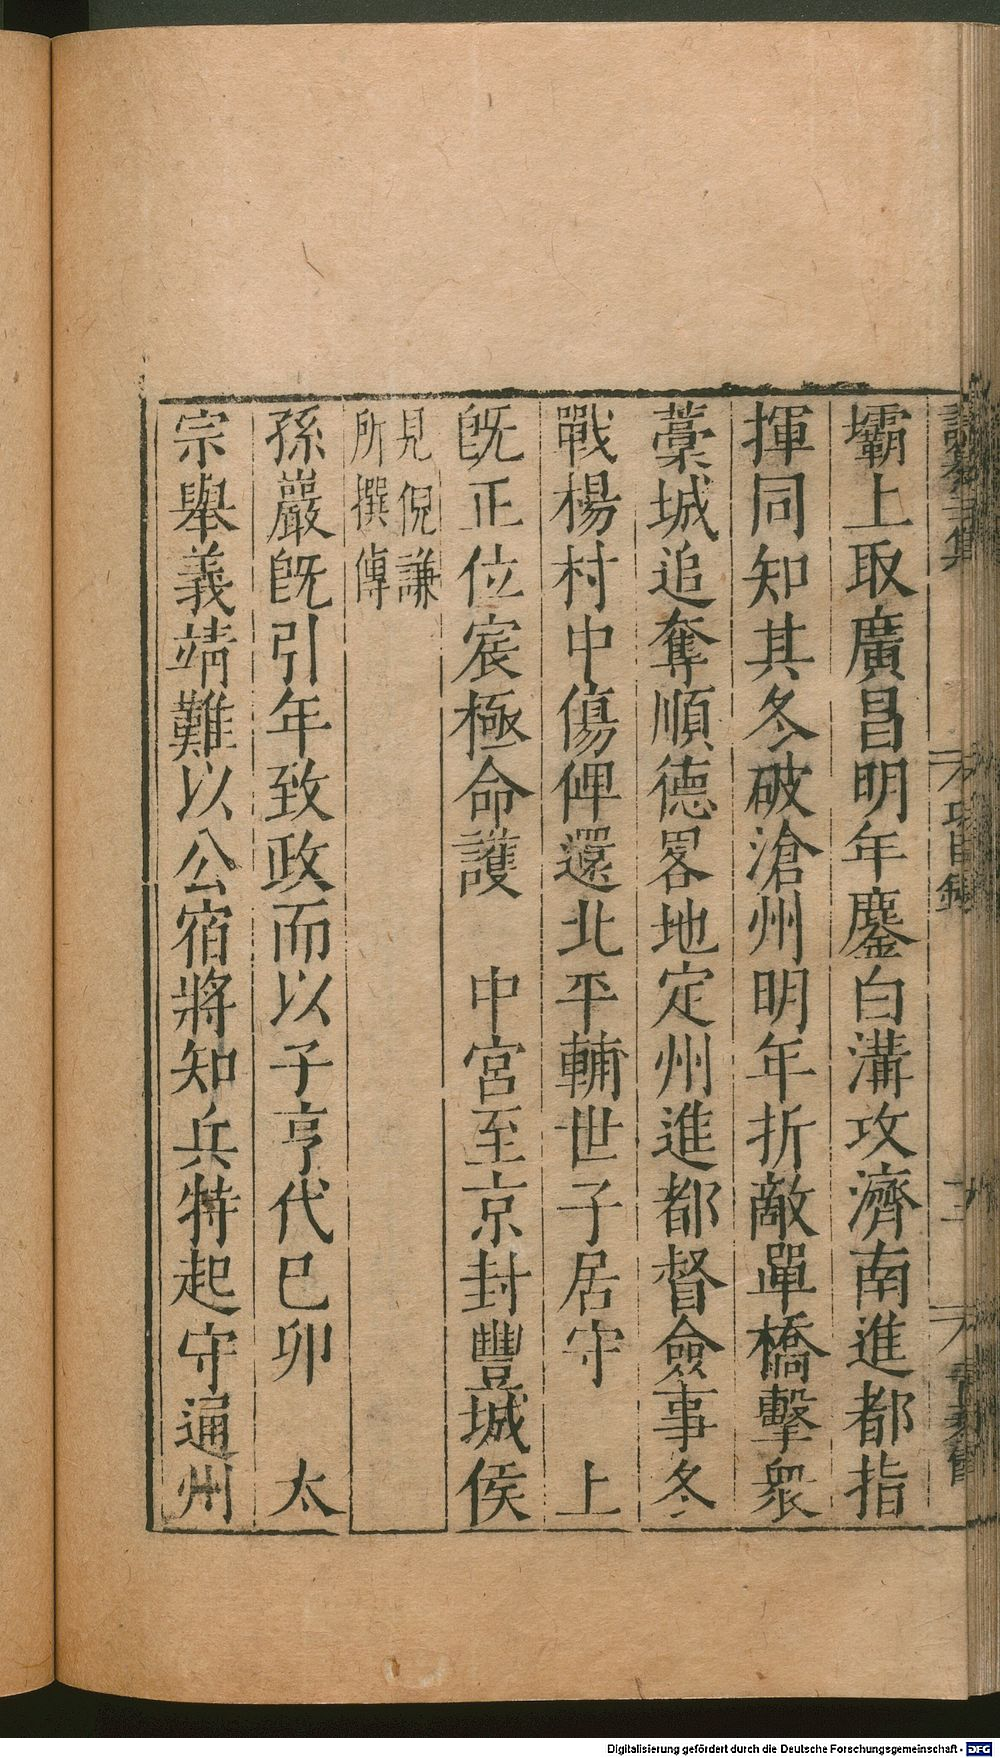 壩上取廣昌明年鏖白溝攻濟南進都指
揮同知其冬破滄州明年折敵單橋擊衆
藁城追奪順德畧地定州進都督僉事冬
戰楊村中傷俾還北平輔世子居守　上
旣正位宸極命護　中宮至京封豐城侯
見倪謙
所撰傳
孫巖旣引年致政而以子亨代巳卯　太
宗舉義靖難以公宿將知兵特起守通州
Digitalisierung gefördert durch die Deutsche Forschungsgemeinschaft - DFG